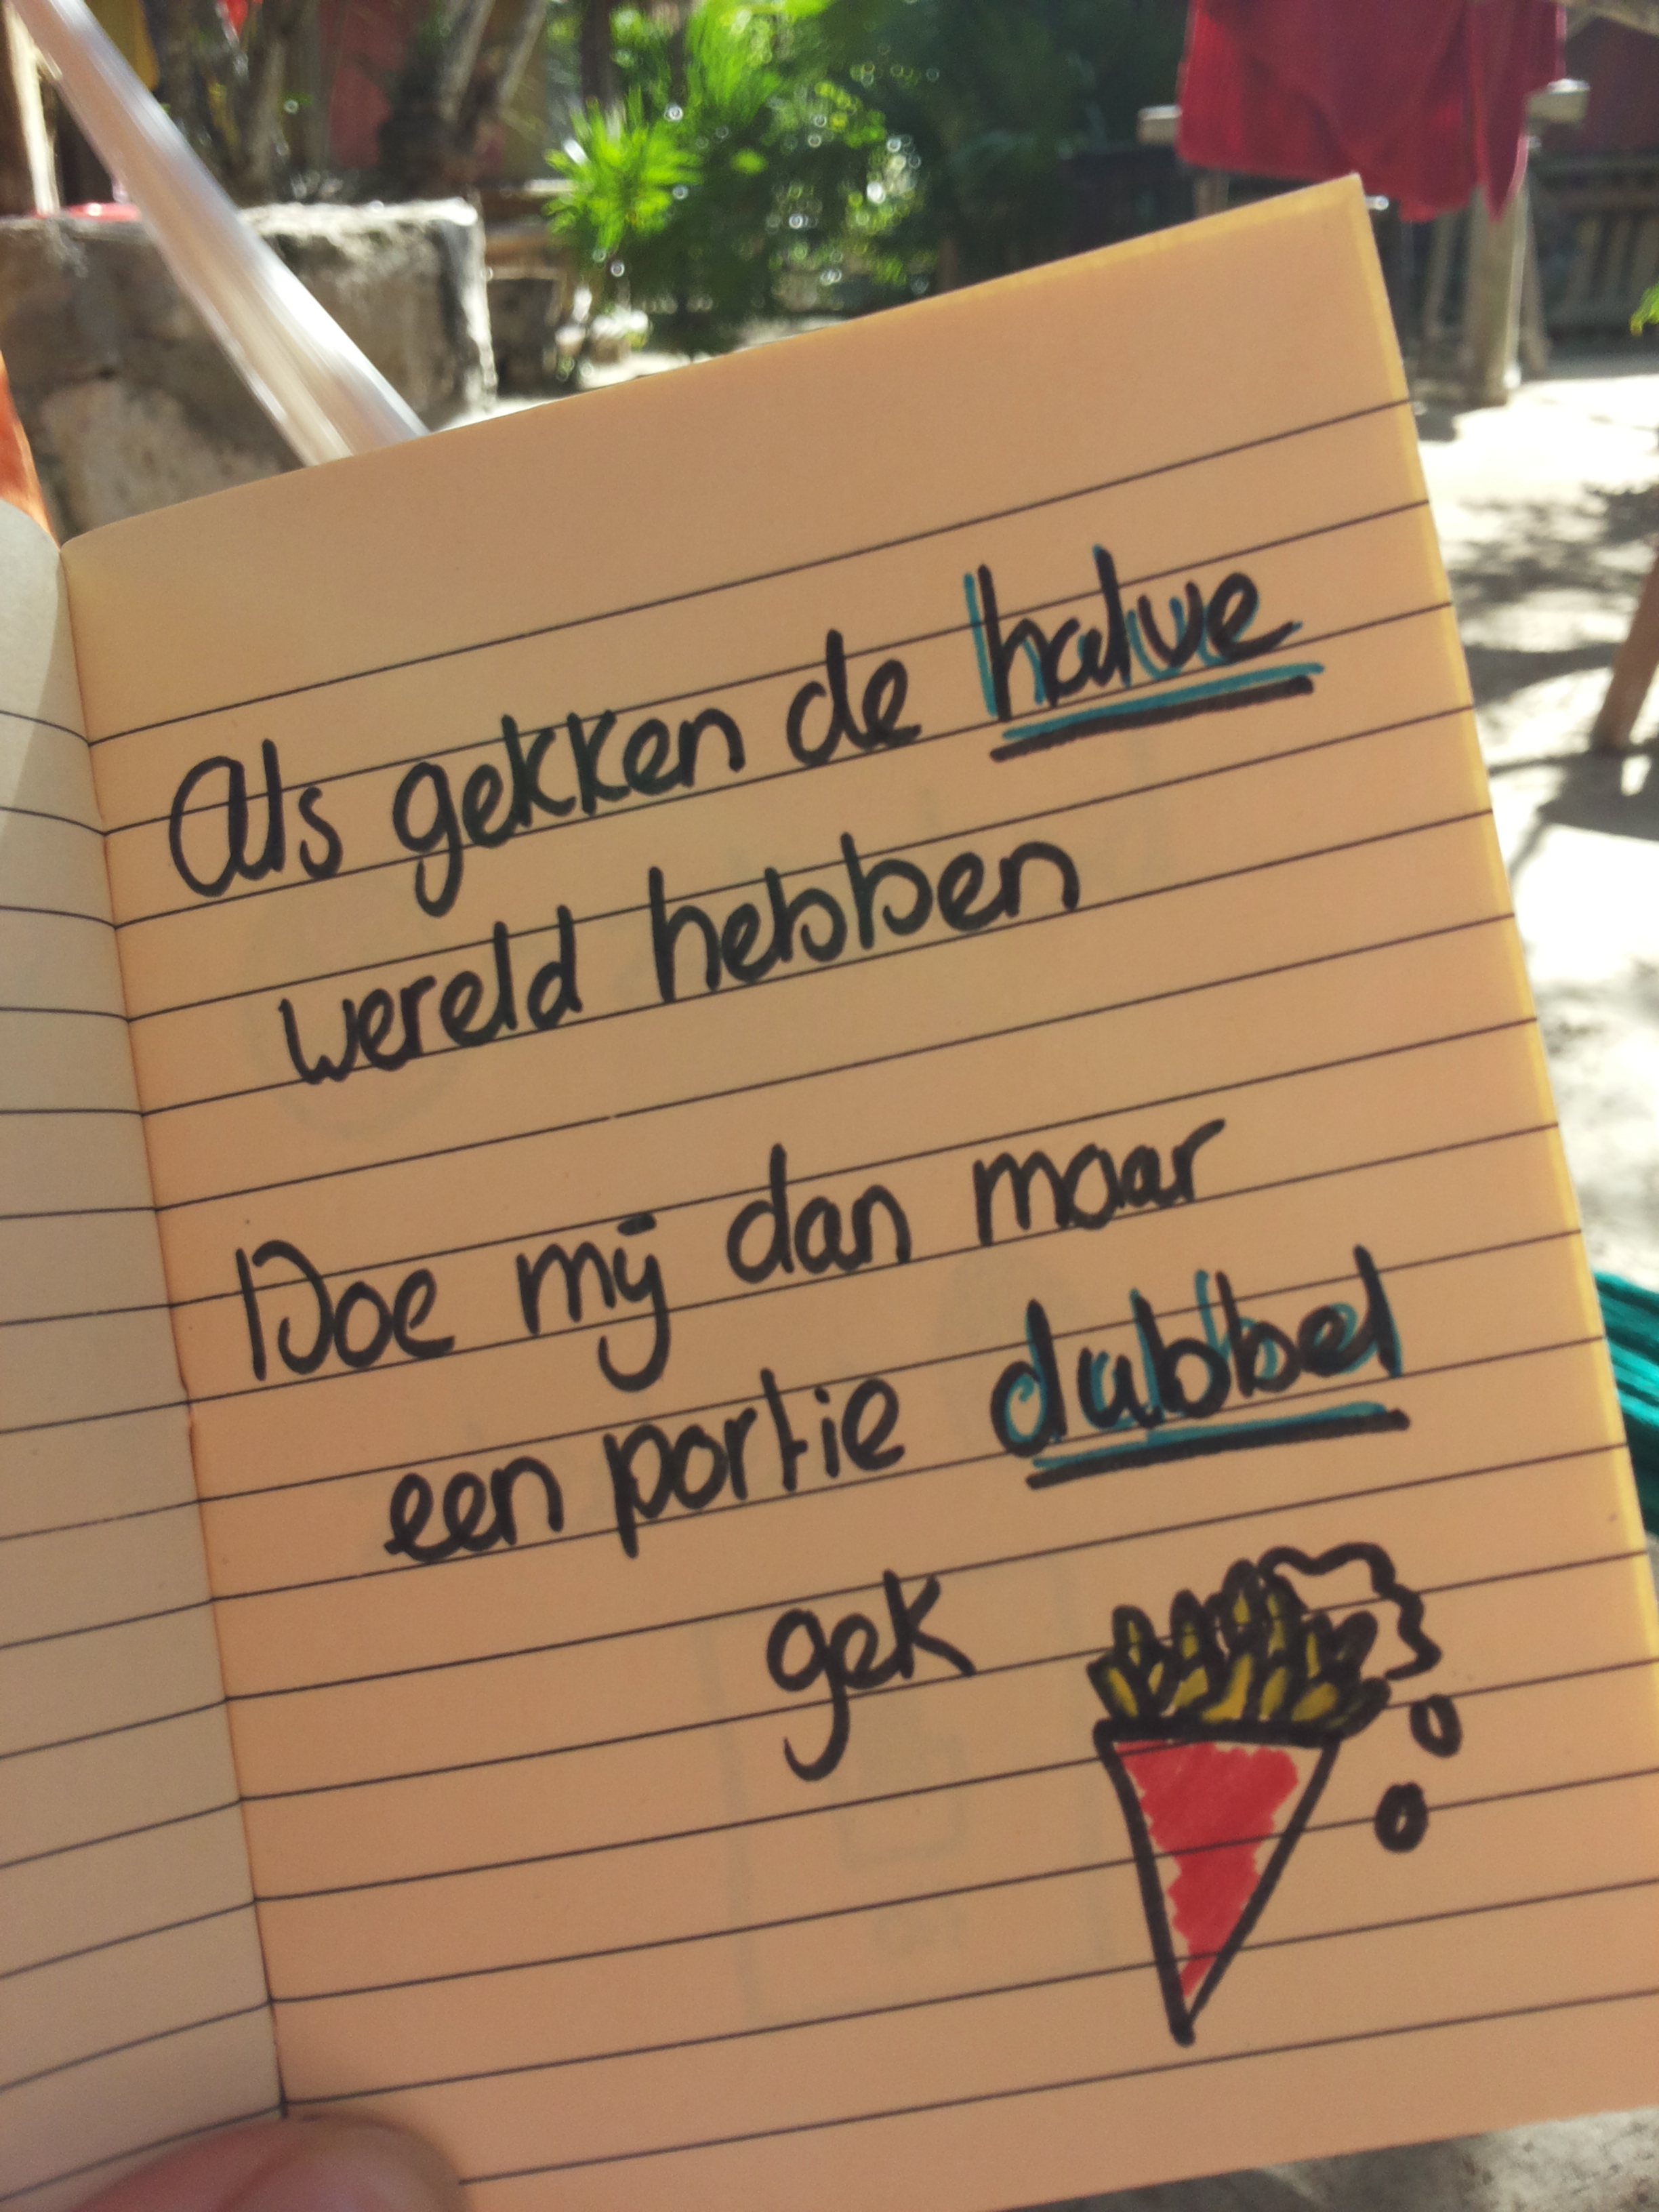 Als gekken de halve
wereld hebben
Doe mij dan maar
een portie dubbel
gek